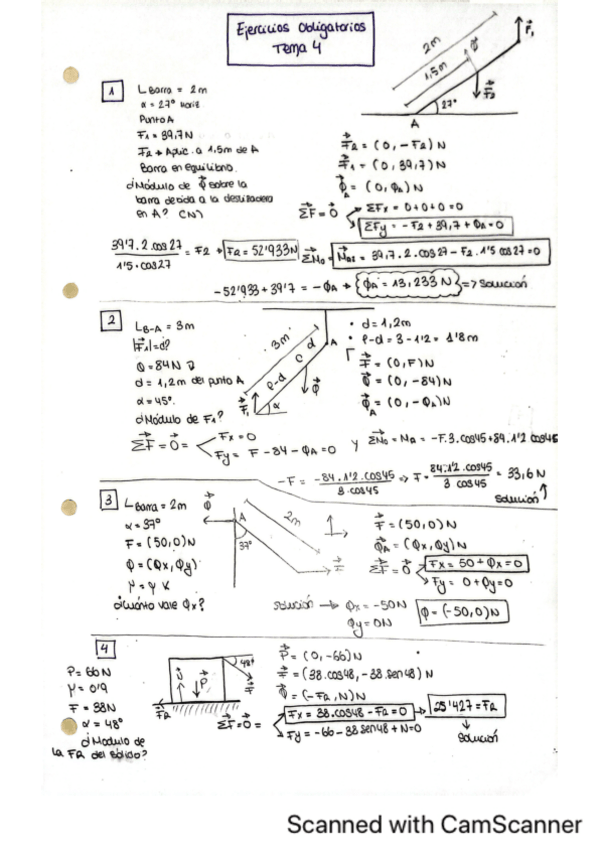 Ejercicios Obligatorios
Tema 4
1
L Barra = 2m
α = 27° Horiz
Punto A
F₁ = 39,7N
F₂ → Aplic. a 1,5m de A
Barra en equilibrio.
¿Módulo de Φ sobre la
barra debida a la deslizadera
en A? (N)
2m
1,5m
F₁
F₂
27°
A
F₂ = (0, -F₂) N
F₁ = (0, 39,7) N
Φ_A = (0, Φ_A) N
ΣF = 0
ΣFx = 0+0+0 = 0
ΣFy = -F₂ + 39,7 + Φ_A = 0
39'7 · 2 · cos 27 / 1'5 · cos 27 = F₂ → F₂ = 52'933N
= 39,7 · 2 · cos 27 - F₂ · 1'5 cos 27 = 0
-52'933 + 39'7 = -Φ_A → Φ_A = 13,233 N => Solución
2
L B-A = 3m
|F₁| = d?
Φ = 84N
d = 1,2m del punto A
α = 45°
¿Módulo de F₁?
3m
d
C
ℓ-d
A
F₁
Φ
α
• d = 1,2m
• ℓ-d = 3 - 1'2 = 1'8m
F = (0, F) N
Φ = (0, -84) N
Φ_A = (0, -Φ_A) N
ΣF = 0 =
Fx = 0
Fy = F - 84 - Φ_A = 0
y ΣM₀ = M_A = -F · 3 · cos45 + 84 · 1'2 cos45
-F = -84 · 1'2 · cos45 / 3 · cos45 => F = 84 · 1'2 · cos45 / 3 cos45 = 33,6 N
solución
3
L Barra = 2m
α = 37°
F = (50,0) N
Φ = (Φx, Φy)
¿Cuánto vale Φx?
Φ
A
2m
37°
F
F = (50,0) N
Φ_A = (Φx, Φy) N
ΣF = 0
Fx = 50 + Φx = 0
Fy = 0 + Φy = 0
solución → Φx = -50N
Φy = 0N
Φ = (-50,0) N
4
P = 66N
μ = 0'9
F = 38N
α = 48°
¿Modulo de
la FR del sólido?
P
48°
F
FR
P = (0, -66) N
F = (38 · cos48, -38 · sen48) N
Φ = (-FR, N) N
ΣF = 0 =
Fx = 38 · cos48 - FR = 0 → 25'427 = FR
Fy = -66 - 38 sen48 + N = 0
Solución
Scanned with CamScanner